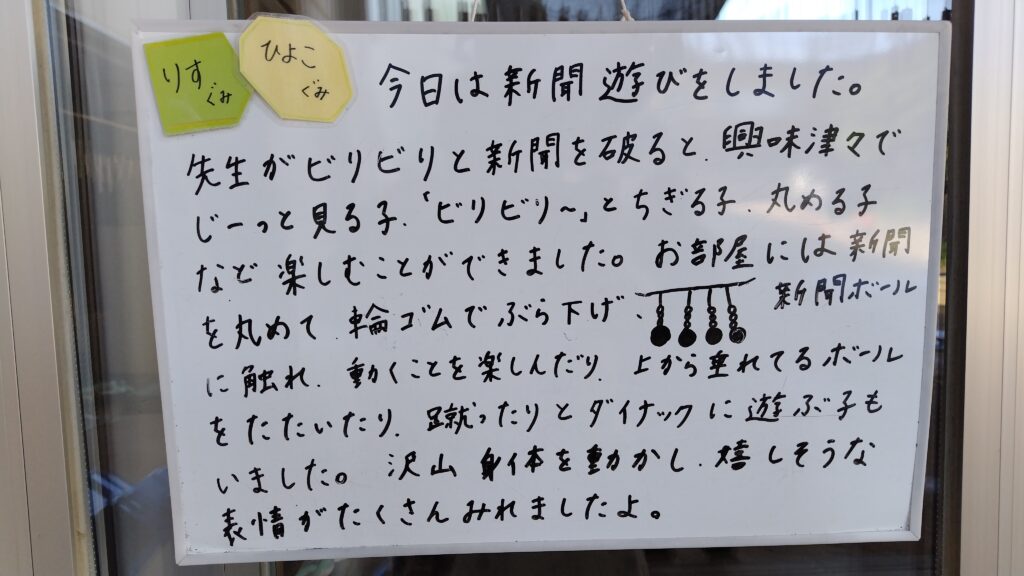 りす
ぐみ
ひよこ
ぐみ
今日は新聞遊びをしました。
先生がビリビリと新聞を破ると、興味津々で
じーっと見る子、「ビリビリ～」とちぎる子、丸める子
など楽しむことができました。お部屋には新聞
を丸めて輪ゴムでぶら下げ、新聞ボール
に触れ、動くことを楽しんだり、上から垂れてるボール
をたたいたり、蹴ったりとダイナックに遊ぶ子も
いました。沢山身体を動かし、嬉しそうな
表情がたくさんみれましたよ。